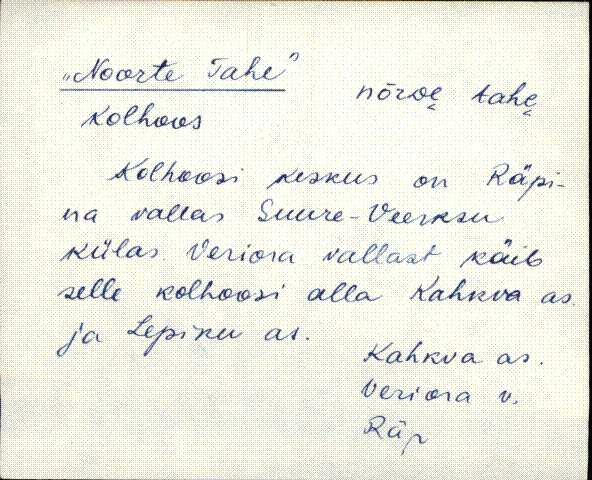 „Noorte Tahe"
nōrde̬ tahe̬
Kolhoos
Kolhoosi keskus on Räpi-
na vallas Suure-Veerksu
külas. Veriora vallast käib
selle kolhoosi alla Kahkva as.
ja Lepiku as.
Kahkva as.
Veriora v.
Räp